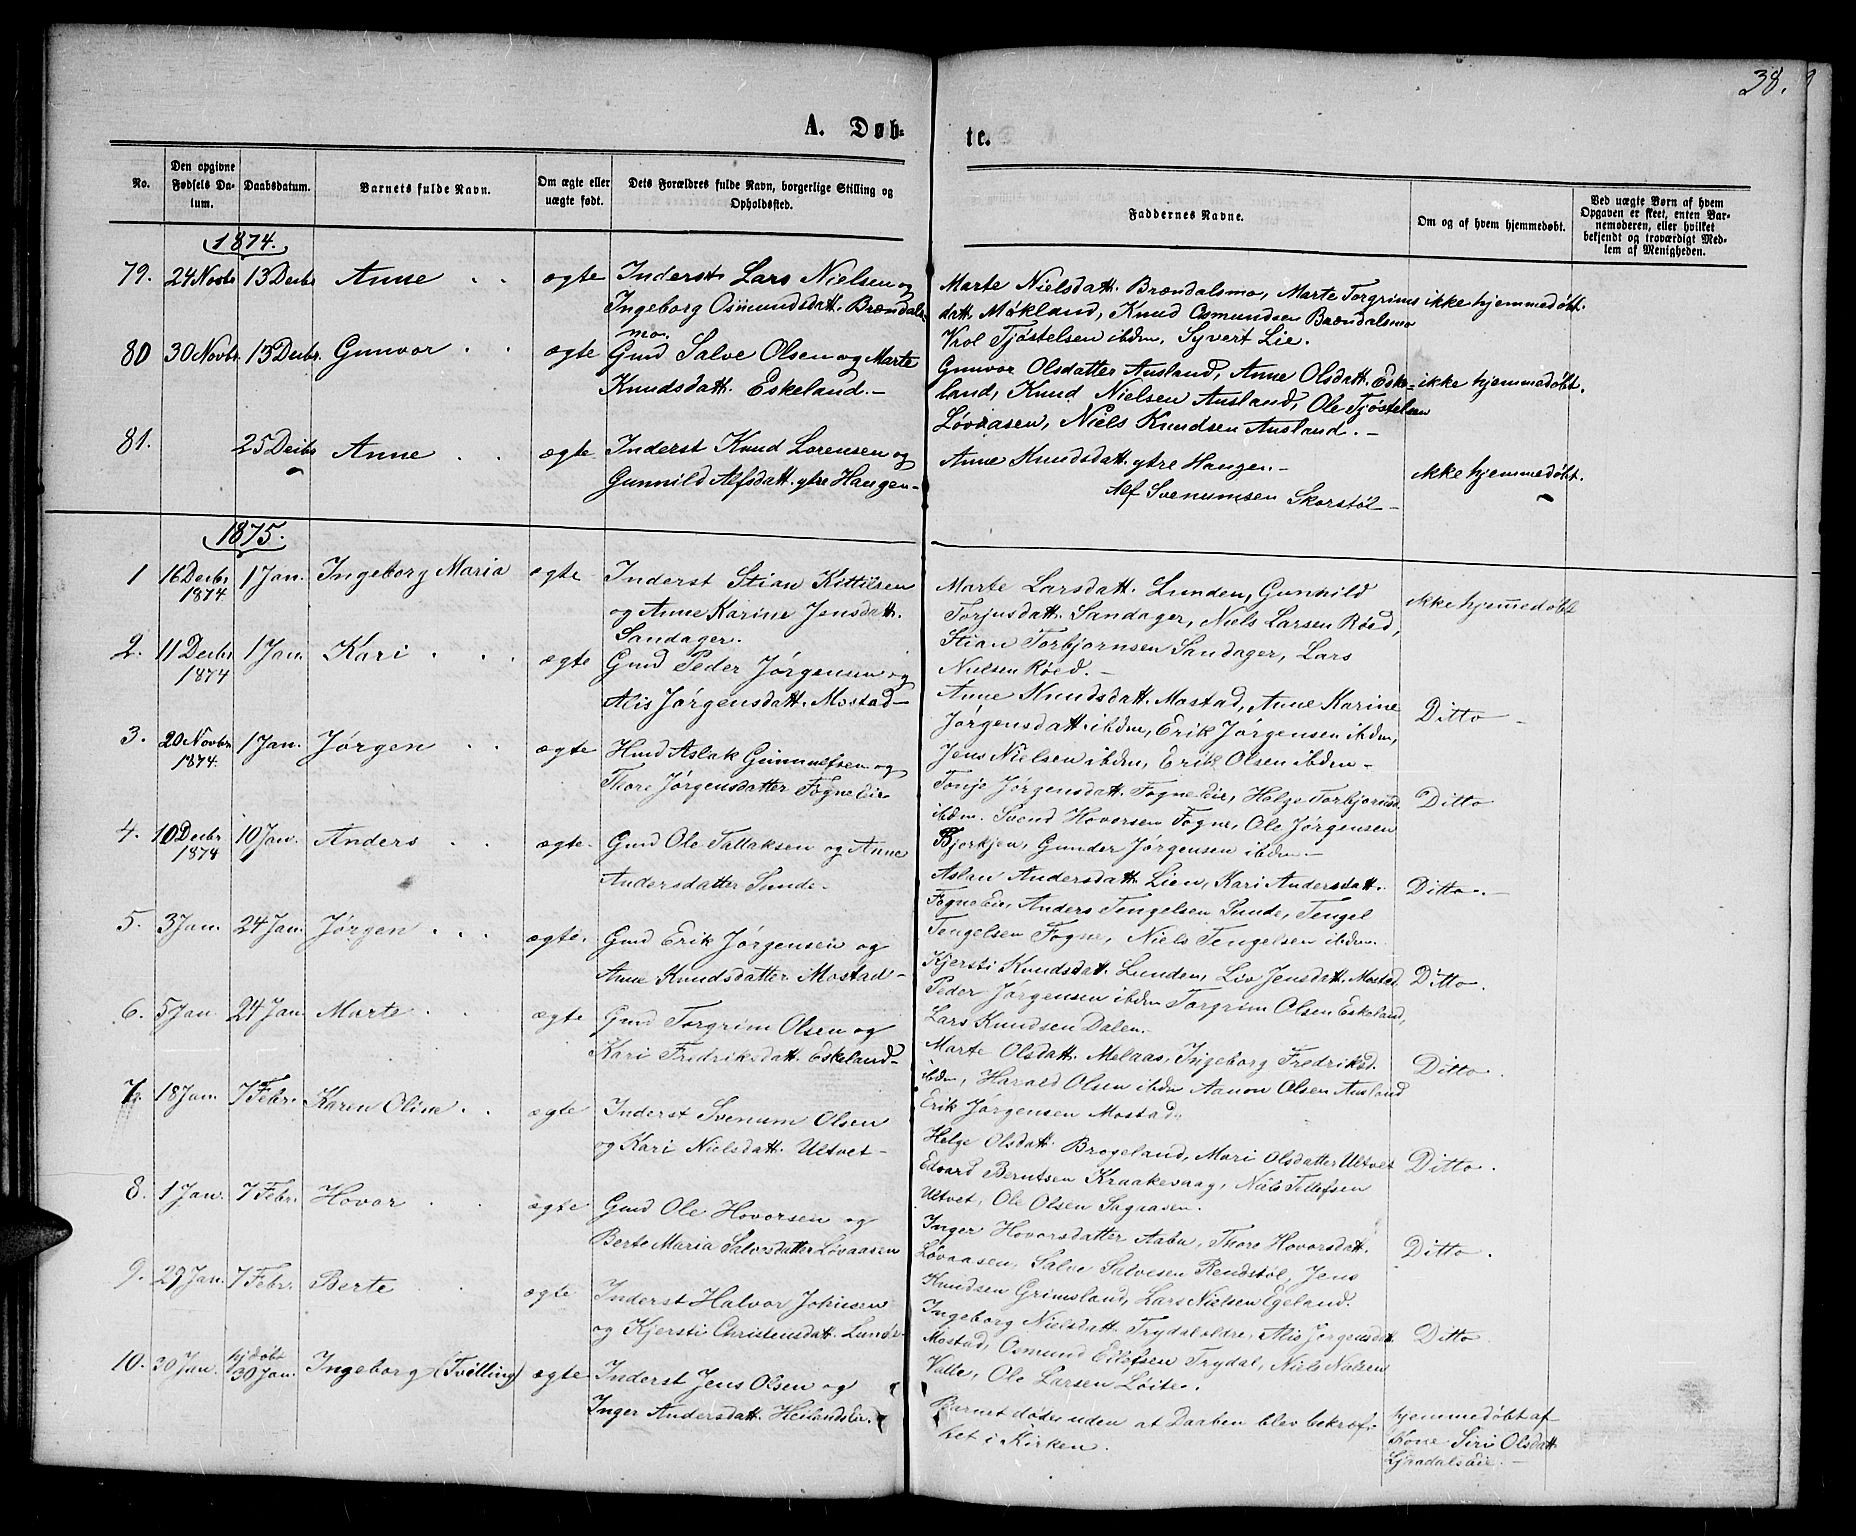 38.
A. Døb-
te.
No.
Den opgivne Fødsels Da-
tum.
Daabsdatum.
Barnets fulde Navn.
Om ægte eller
uægte født.
Dets Forældres fulde Navn, borgerlige Stilling og
Opholdssted.
Faddernes Navne.
Om og af hvem hjemmedøbt.
Ved uægte Børn af hvem
Opgaven er skeet, enten Bar-
nemoderen, eller hvilket
bekjendt og troværdigt Med-
lem af Menigheden.
1874.
79. 24 Novbr 13 Decbr Anne ægte Inderst Lars Nielsen og
Ingeborg Osmundsdatt. Brændals-
mo.
Marte Nielsdatt. Brændalsmo, Marte Torgrims
datt. Møkland, Knud Osmundsen Brændalsmo
Tjøstelsen ibdm, Syvert Lie.
ikke hjemmedøbt.
80 30 Novbr. 13 Decbr. Gunvor ægte Gmd Salve Olsen og Marte
Knudsdatt. Eskeland.-
Gunvor Olsdatter Ausland, Anne Olsdatt. Eske-
land, Knud Nielsen Ausland, Ole Tjøstelsen
Løvaasen, Niels Knudsen Ausland.-
ikke hjemmedøbt.
81. 25 Decbr Anne ægte Inderst Knud Lorensen og
Gunnild Alfsdatt. ytre Haugen-
Anne Knudsdatt. ytre Haugen.-
Alf Svenumsen Skorstøl-
ikke hjemmedøbt.
1875.
1 16 Decbr 1874 1 Jan. Ingeborg Maria ægte Inderst Stian Kittilsen
og Anne Karine Jensdatt.
Sandager.
Marte Larsdatt. Lunden, Gunnild
Torjusdatt. Sandager, Niels Larsen Røed,
Stian Torbjørnsen Sandager, Lars
Nielsen Røed.-
ikke hjemmedøbt
2. 11 Decbr 1874 1 Jan. Kari ægte Gmd Peder Jørgensen og
Alis Jørgensdatt. Mostad-
Anne Knudsdatt. Mostad, Anne Karine
Jørgensdatt. ibdm, Erik Jørgensen ibdm,
Jens Nielsen ibdm, Erik Olsen ibdm-
Ditto -
3. 20 Novbr 1874. 1 Jan. Jørgen ægte Hmd Aslak Gunnulfsen og
Thore Jørgensdatter Fogne Eie
Tonje Jørgensdatt. Fogne Eie, Helge Torbjørnsd.
ibdm. Svend Hoversen Fogne, Ole Jørgensen
Bjorkjen, Gunder Jørgensen ibdm-
Ditto
4. 10 Decbr 1874 10 Jan. Anders ægte. Gmd Ole Tallaksen og Anne
Andersdatter Sunde-
Aslau Andersdatt. Lien, Kari Andersdatt.
Fogne Eie, Anders Tengelsen Sunde, Tengel
Tengelsen Fogne, Niels Tengelsen ibdm.
Ditto.-
5. 3 Jan. 24 Jan. Jørgen ægte. Gmd Erik Jørgensen og
Anne Knudsdatter Mostad-
Kjersti Knudsdatt. Lunden, Liv Jensdatt. Mostad
Peder Jørgensen ibdm Torgrim Olsen Eskeland,
Lars Knudsen Dalen.
Ditto.
6. 5 Jan 24 Jan. Marte ægte Gmd Torgrim Olsen og
Kari Fredriksdatt. Eskeland-
Marte Olsdatt. Melaas, Ingeborg Fredriksd.
ibdm, Harald Olsen ibdm Aanon Olsen Ausland
Erik Jørgensen Mostad.
Ditto.
7. 18 Jan. 7 Febr. Karen Oline ægte Inderst Svenum Olsen
og Kari Nielsdatt. Ultvet-
Helge Olsdatt. Brogeland, Mari Olsdatter Ultvet
Edvard Berntsen Kraakevaag, Niels Tellefsen
Ultvet, Ole Olsen Sagaasen.
Ditto.
8. 1 Jan. 7 Febr. Hovor ægte Gmd Ole Hovorsen og
Berte Maria Salvesdatter Løvaasen
Inger Hovorsdatter Aabu, Thore Hovorsdatt.
Løvaasen, Salve Salvesen Rendstøl, Jens
Knudsen Grimsland, Lars Nielsen Egeland.
Ditto.
9. 29 Jan. 7 Febr. Berte ægte Inderst Halvor Johnsen
og Kjersti Christensdatt. Lunde-
Ingeborg Nielsdatt. Trydal oldre, Alis Jørgensdt.
Mostad, Osmund Eilefsen Trydal, Niels Nielsen
Valle, Ole Larsen Løite.
Ditto.
10. 30 Jan. hjdøbt 30 Jan. Ingeborg (Tvilling) ægte Inderst Jens Olsen og
Inger Andersdatt. Heilands Eie.
Barnet døde uden at Daaben blev bekræf-
tet i Kirken.
hjemmedøbt af
Kone Siri Olsdatt